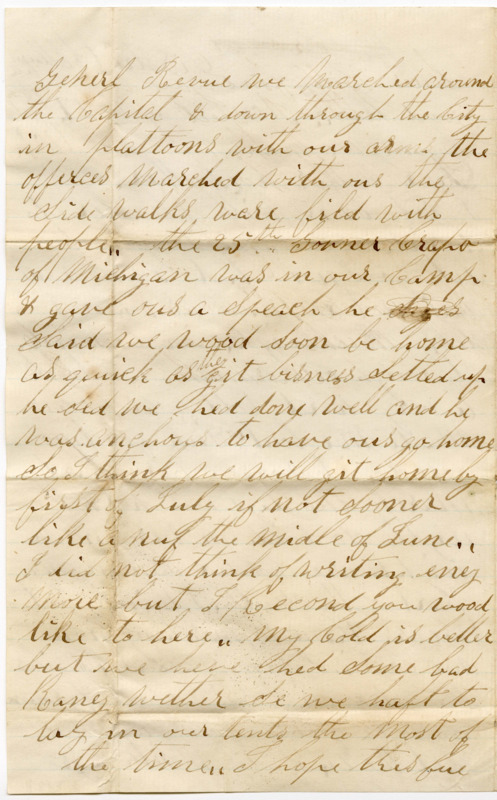 Generl Revue we Marched around
the Capitol & down through the City
in plattoons with our arms the
officces Marched with ous the
side walks, ware filed with
people,, the 25th Govner Crapo
of Michigan was in our Camp
& gave ous a speach he
said we wood soon be home
as quick as they git bisness Setled up
he sid we hed done well and he
was anchous to have ous go home
So I think we will git home by
first of July if not sooner
like a nuf the midle of June,,
I did not think of writing eney
more but I Recond you wood
like to here,, My Cold is better
but we heve hed some bad
Raney wether So we haft to
lay in our tents the Most of
the time,, I hope this few